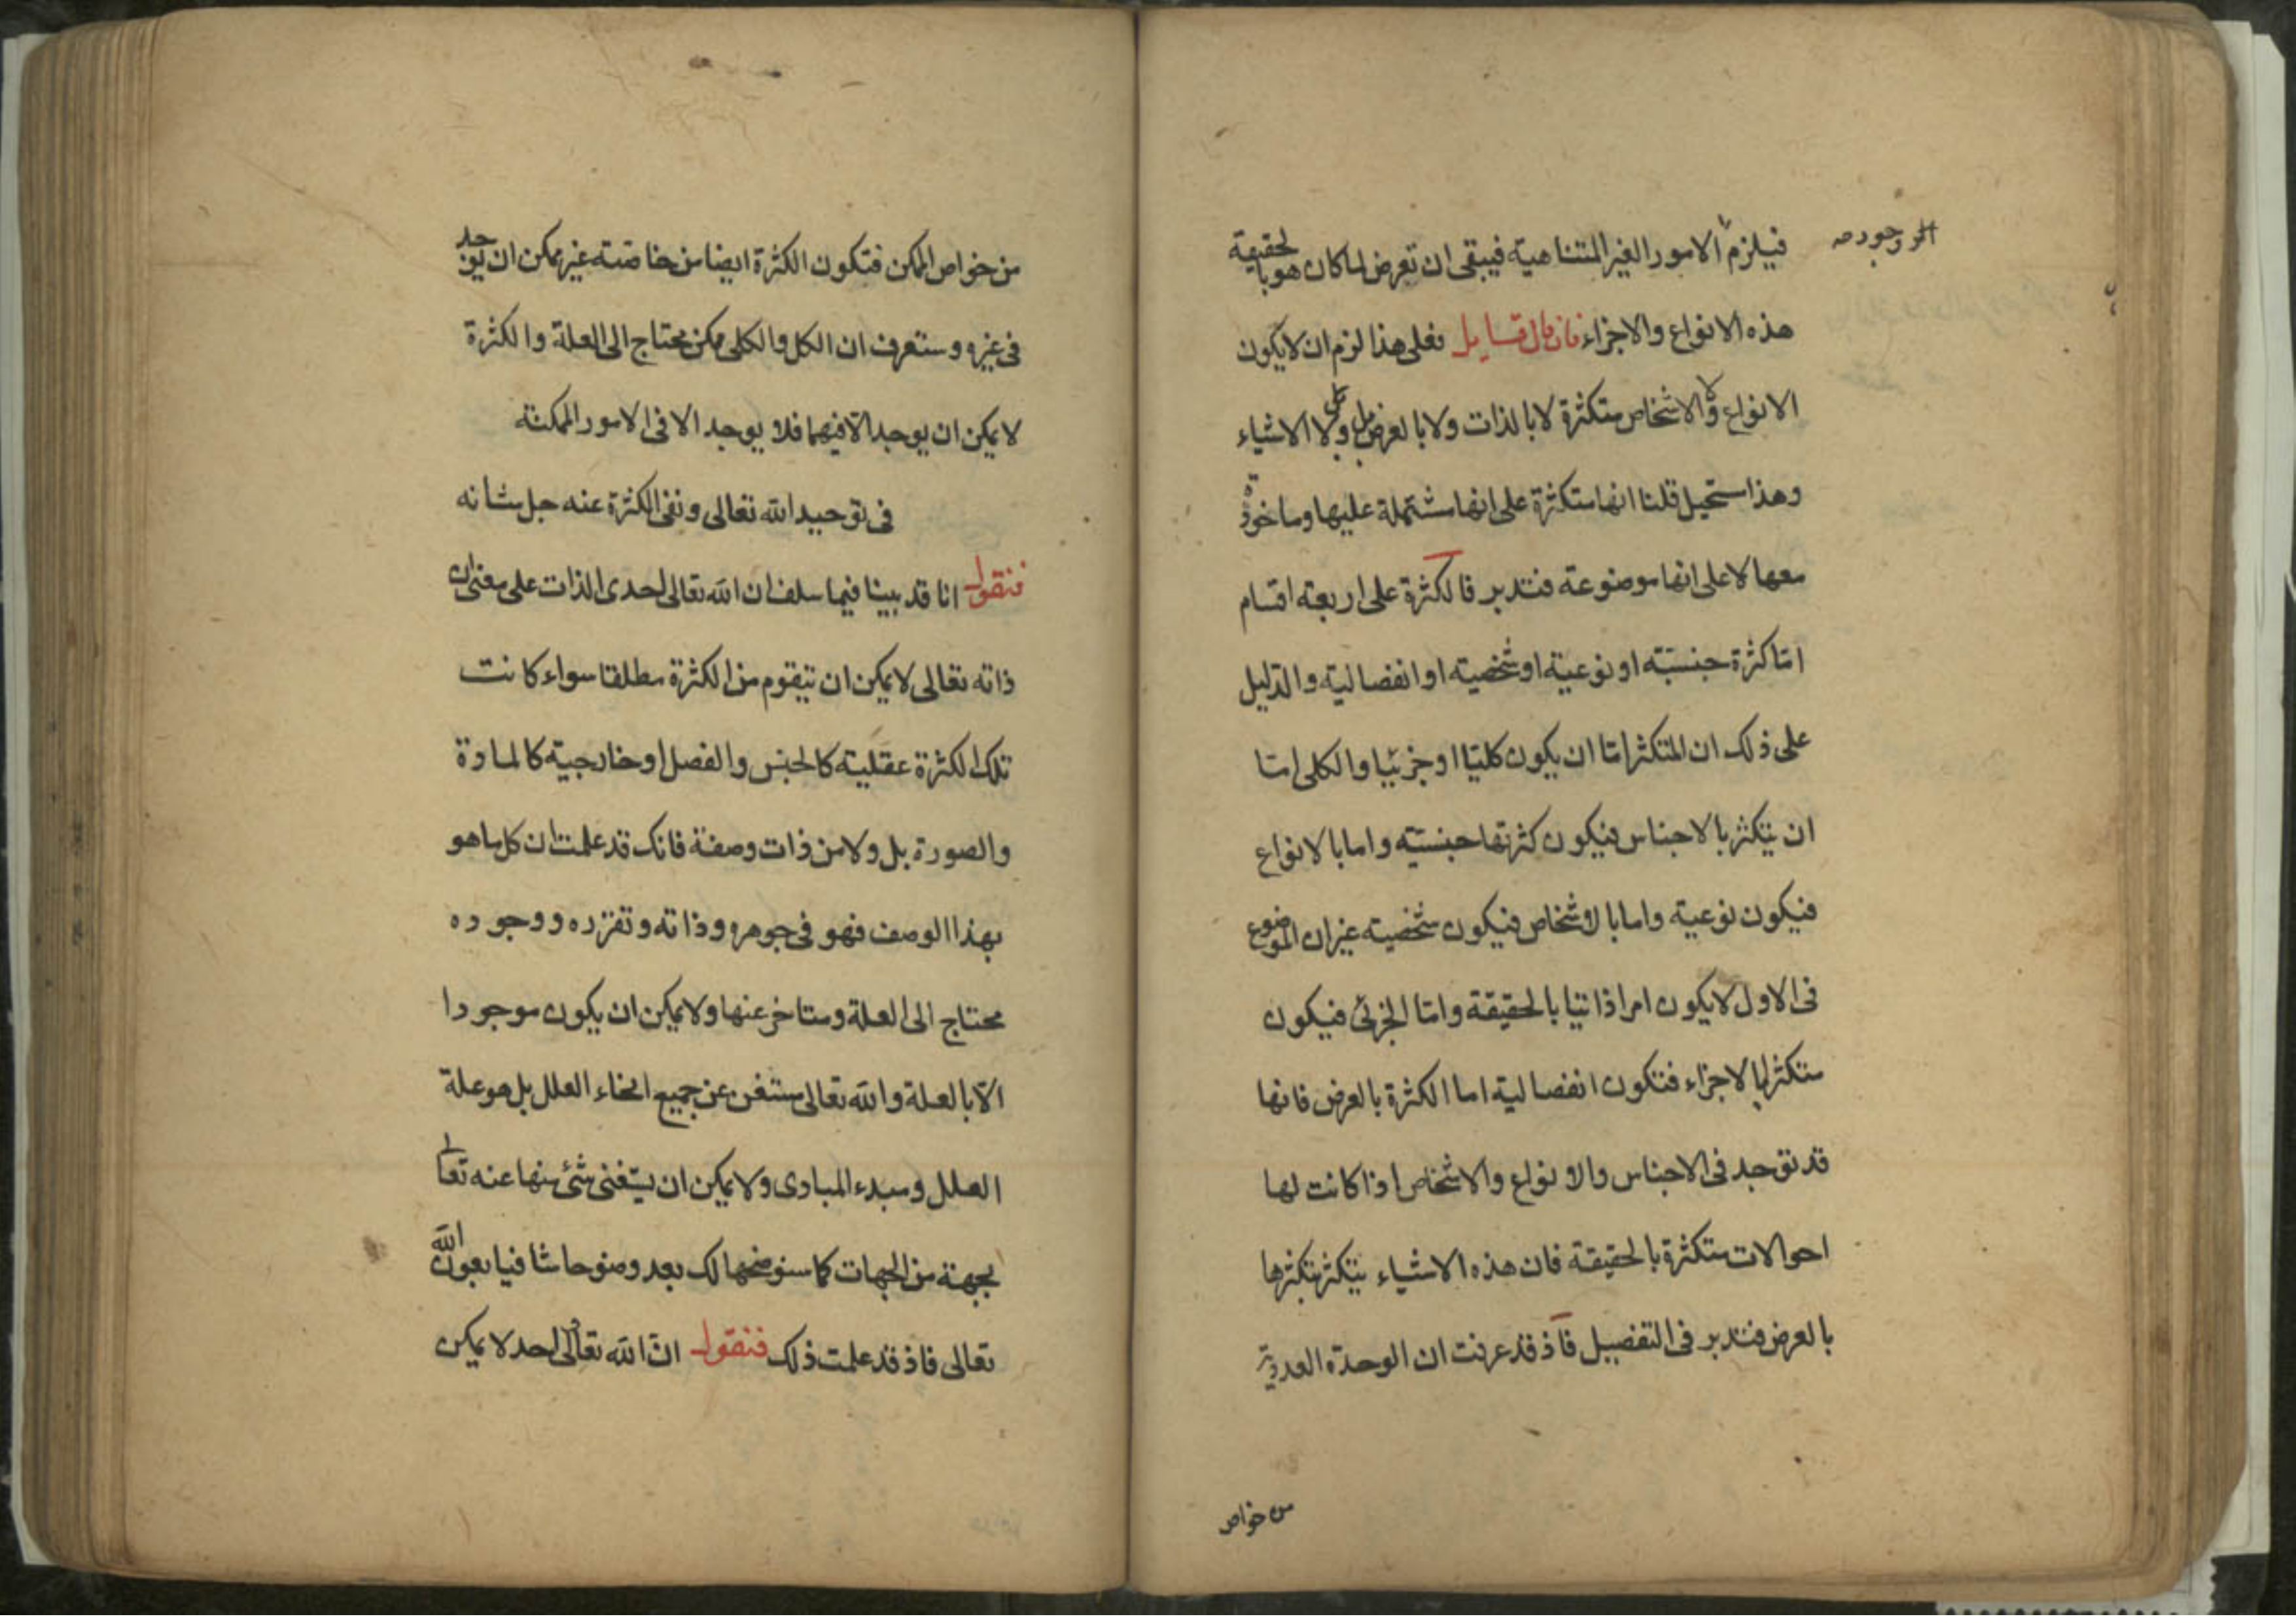 فيلزم الامور الغير المتناهية فيبقى ان تعرض لما كان هو بالحقيقة
وجود
هذه الانواع والاجزاء فان قال قايل فعلى هذا لزم ان لا يكون
الانواع ولا الاشخاص متكثرة لا بالذات ولا بالعرض بل ولا كل الاشياء
وهذا مستحيل قلنا انها متكثرة على انها مشتملة عليها وماخوذة
معها لا على انها موضوعة فتدبر فالكثرة على اربعة اقسام
امّا كثرة جنسيّة او نوعية او شخصية او انفصالية والدّليل
على ذلك ان المتكثر امّا ان يكون كليّا او جزئيّا والكلى امّا
ان يتكثر بالاجناس فيكون كثرتها جنسيّة واما بالانواع
فيكون نوعية واما بالاشخاص فيكون شخصية غير ان الموضوع
فى الاول لا يكون امرا ذاتيا بالحقيقة وامّا الجزئى فيكون
متكثرا بالاجزاء فتكون انفصالية اما الكثرة بالعرض فانها
قد توجد فى الاجناس والانواع والاشخاص اذا كانت لها
احوالات متكثرة بالحقيقة فان هذه الاشياء يتكثر بتكثرها
بالعرض فتدبر فى التفصيل فاذ قد عرفت ان الوحدة العددية
من خواص
من خواص الممكن فتكون الكثرة ايضا من خاصته غير ممكن ان يوجد
فى غيره وستعرف ان الكل والكلى ممكن محتاج الى العلة والكثرة
لا يمكن ان يوجد الّا فيهما فلا يوجد الا فى الامور الممكنة
فى توحيد الله تعالى ونفى الكثرة عنه جل شانه
فنقول انا قد بينا فيما سلف ان الله تعالى احدى الذات على معنى ان
ذاته تعالى لا يمكن ان يتقوم من الكثرة مطلقا سواء كانت
تلك الكثرة عقلية كالجنس والفصل او خارجية كالمادة
والصورة بل ولا من ذات وصفة فانك قد علمت ان كل ما هو
بهذا الوصف فهو فى جوهره وذاته وتفرده ووجوده
محتاج الى العلة ومتاخر عنها ولا يمكن ان يكون موجودا
الّا بالعلة والله تعالى مستغن عن جميع انحاء العلل بل هو علة
العلل ومبدء المبادى ولا يمكن ان يستغنى شئ منها عنه تعالى
بجهة من الجهات كما سنوضحها لك بعد وضوحا شافيا بعون الله
تعالى فاذ قد علمت ذلك فنقول انّ الله تعالى احد لا يمكن